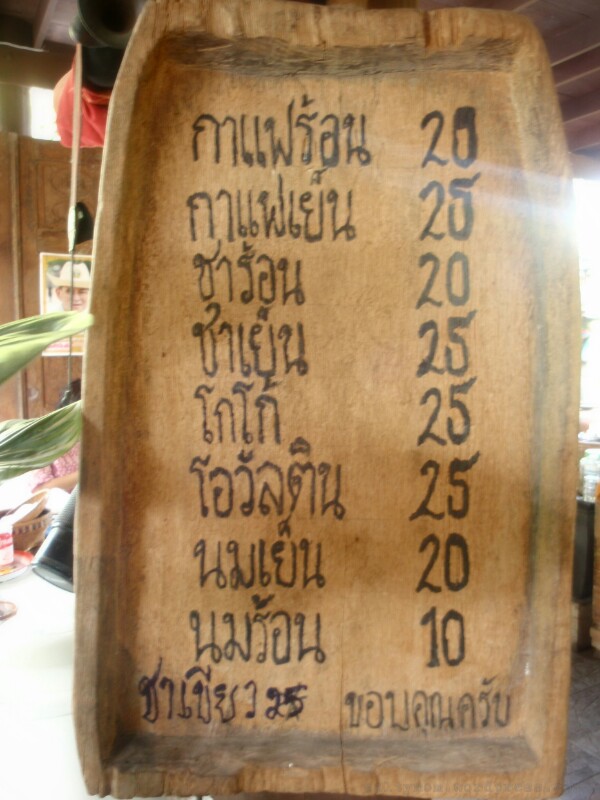 กาแฟร้อน 20
กาแฟเย็น 25
ชาร้อน 20
ชาเย็น 25
โกโก้ 25
โอวัลติน 25
นมเย็น 20
นมร้อน 10
ชาเขียว 25 ขอบคุณครับ